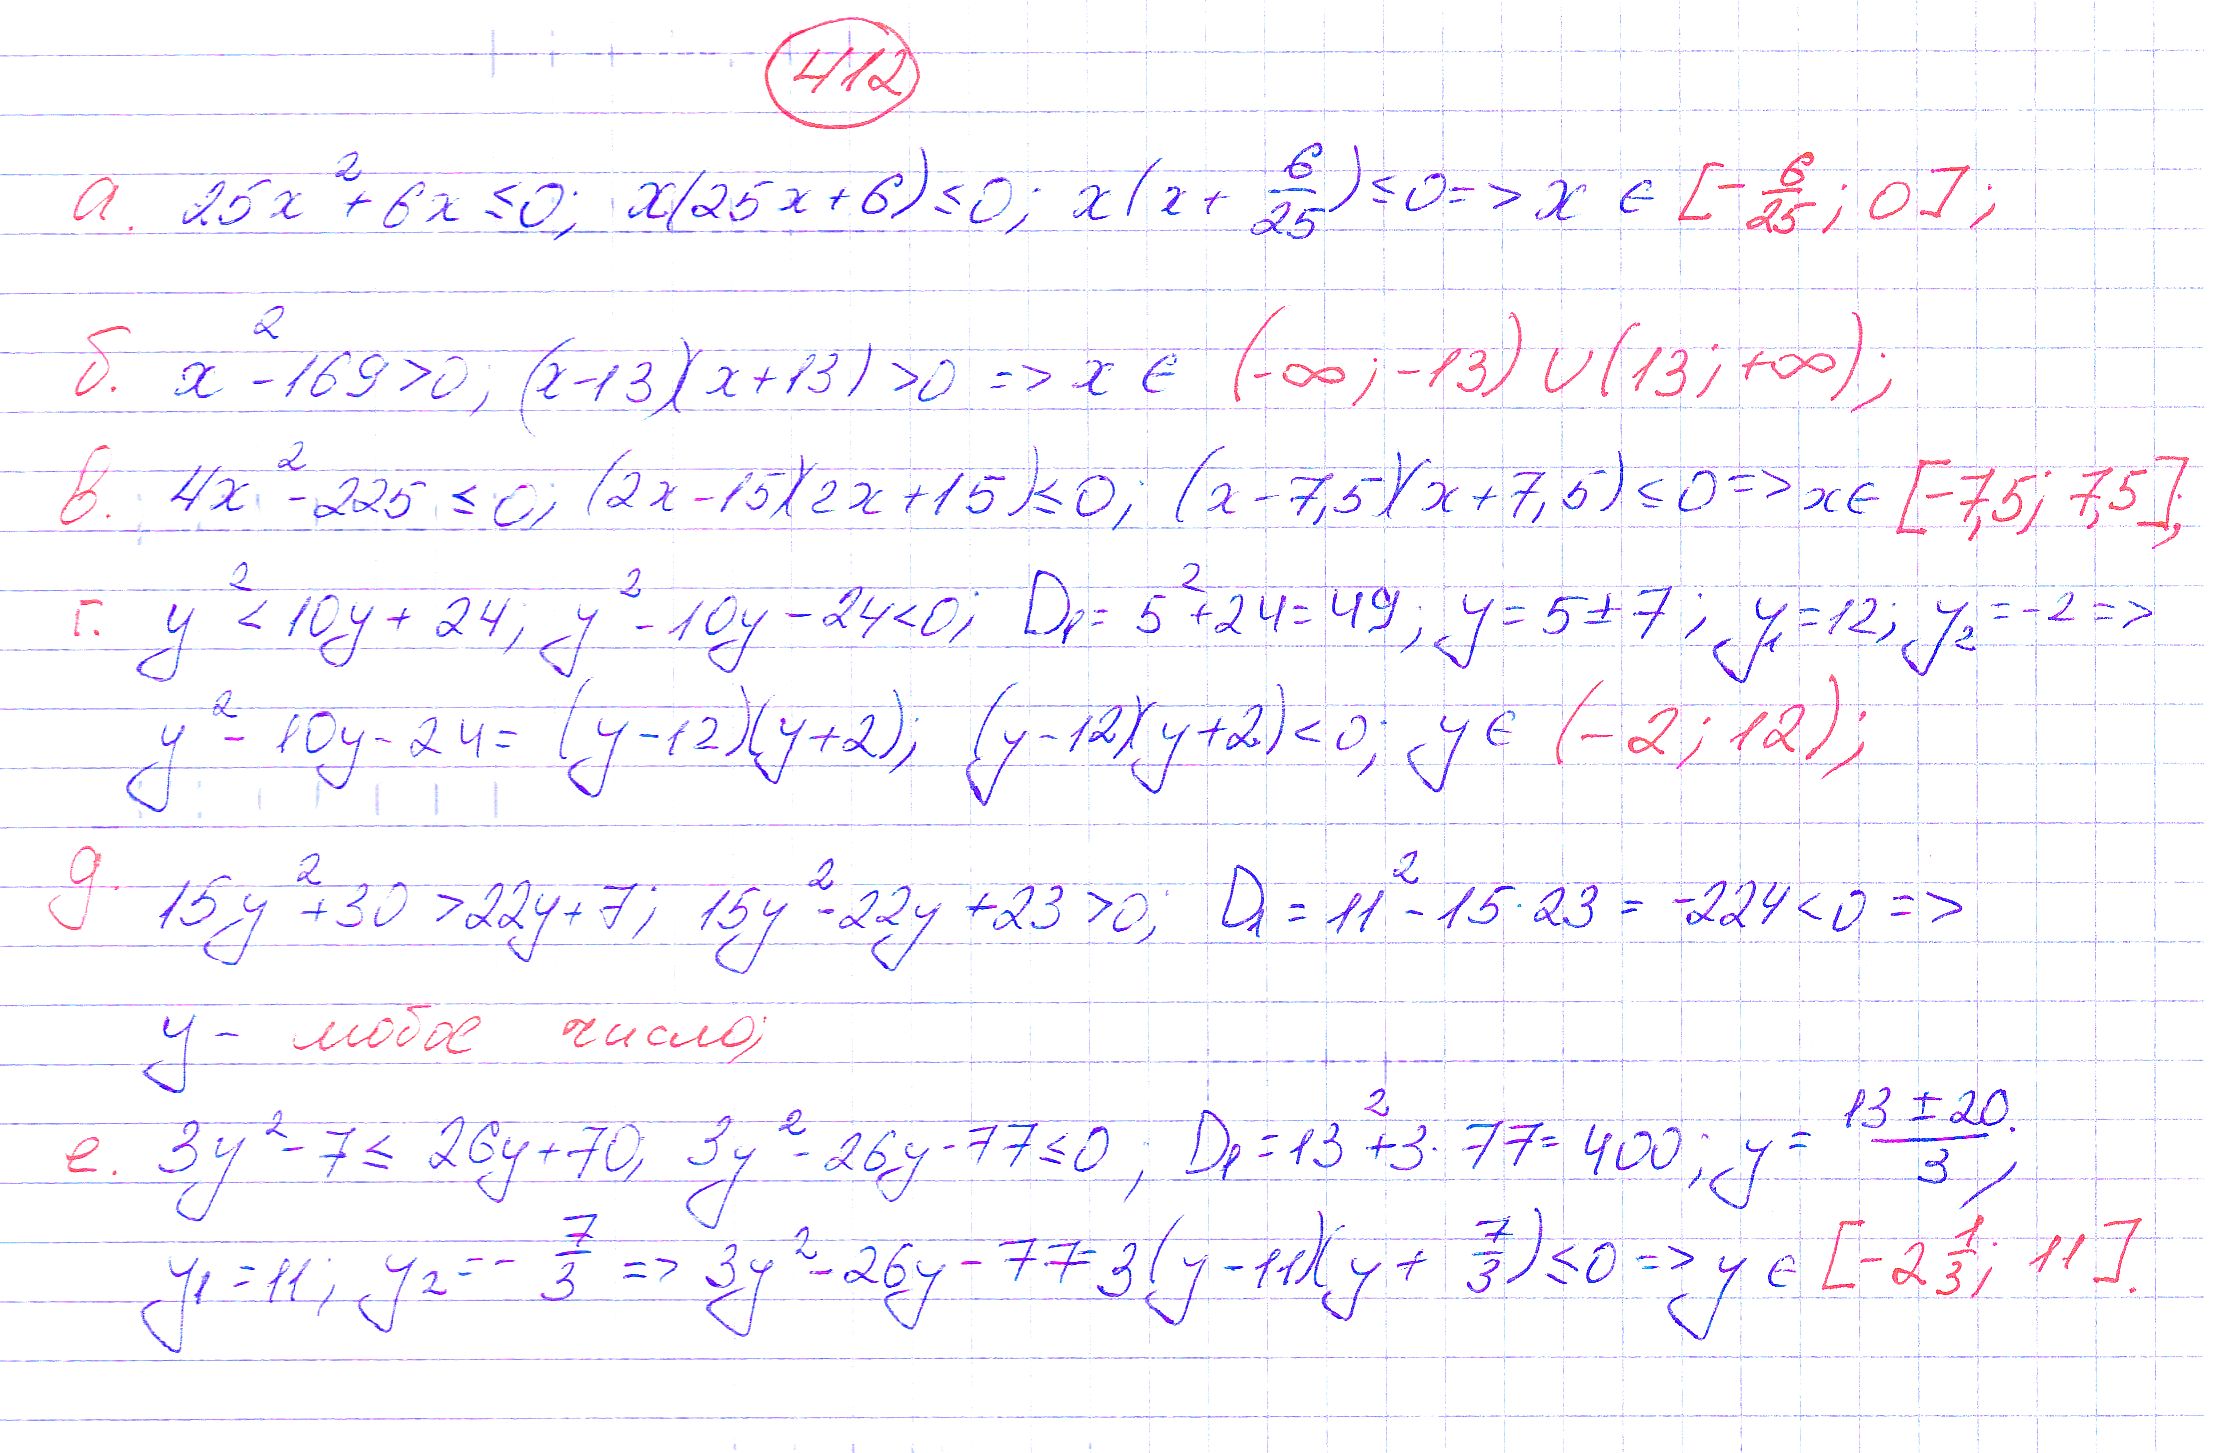 412
а. 25x² + 6x ≤ 0; x(25x + 6) ≤ 0; x(x + 6/25) ≤ 0 => x ∈ [-6/25; 0];
б. x² - 169 > 0; (x-13)(x+13) > 0 => x ∈ (-∞; -13) ∪ (13; +∞);
в. 4x² - 225 ≤ 0; (2x-15)(2x+15) ≤ 0; (x-7,5)(x+7,5) ≤ 0 => x ∈ [-7,5; 7,5];
г. y² < 10y + 24; y² - 10y - 24 < 0; D₁ = 5² + 24 = 49; y = 5 ± 7; y₁ = 12; y₂ = -2 =>
y² - 10y - 24 = (y-12)(y+2); (y-12)(y+2) < 0; y ∈ (-2; 12);
д. 15y² + 30 > 22y + 7; 15y² - 22y + 23 > 0; D₁ = 11² - 15·23 = -224 < 0 =>
y - любое число;
е. 3y² - 7 ≤ 26y + 70; 3y² - 26y - 77 ≤ 0; D₁ = 13² + 3·77 = 400; y = (13 ± 20)/3;
y₁ = 11; y₂ = -7/3 => 3y² - 26y - 77 = 3(y-11)(y + 7/3) ≤ 0 => y ∈ [-2 1/3; 11].